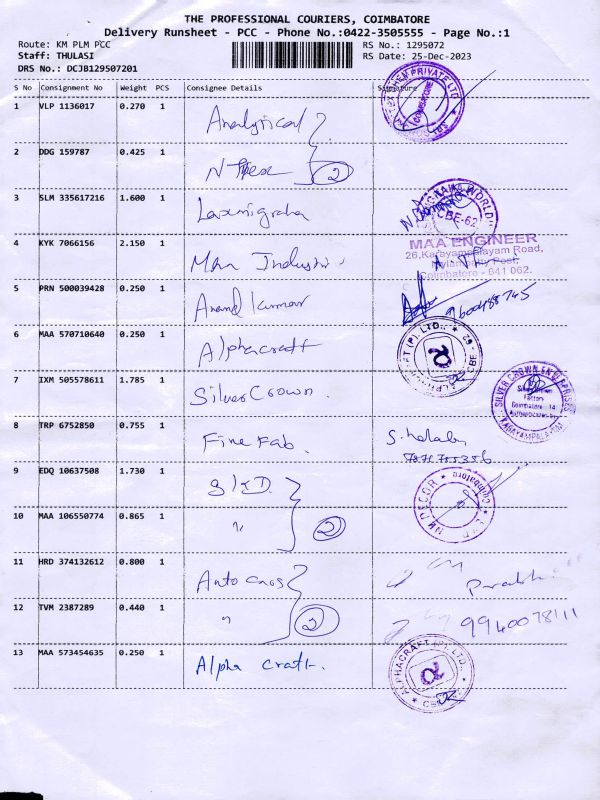 THE PROFESSIONAL COURIERS, COIMBATORE
Delivery Runsheet - PCC - Phone No.:0422-3505555 - Page No.:1
Route: KM PLM PCC RS No.: 1295072
Staff: THULASI RS Date: 25-Dec-2023
DRS No.: DCJB129507201
S No Consignment No Weight PCS Consignee Details Signature
1 VLP 1136017 0.270 1 Analytical
2 DDG 159787 0.425 1 2
3 SLM 335617216 1.600 1 Laxmigraha
CBE-62
4 KYK 7066156 2.150 1
MAA ENGINEER
26,Karayampalayam Road,
Coimbatore - 641 062.
5 PRN 500039428 0.250 1 Anand Kumar 9600488745
6 MAA 570710640 0.250 1 Alphacraft
ALPHACRAFT (P) LTD., CBE
7 IXM 505578611 1.785 1 Silver Crown.
SILVER CROWN ENTERPRISES
KARAYAMPALAYAM
8 TRP 6752850 0.755 1 Fine Fab.
9 EDQ 10637508 1.730 1
DECOR Coimbatore
10 MAA 106550774 0.865 1 " 2
11 HRD 374132612 0.800 1
12 TVM 2387289 0.440 1 " 2
13 MAA 573454635 0.250 1 Alpha Craft.
ALPHACRAFT (P) LTD.,